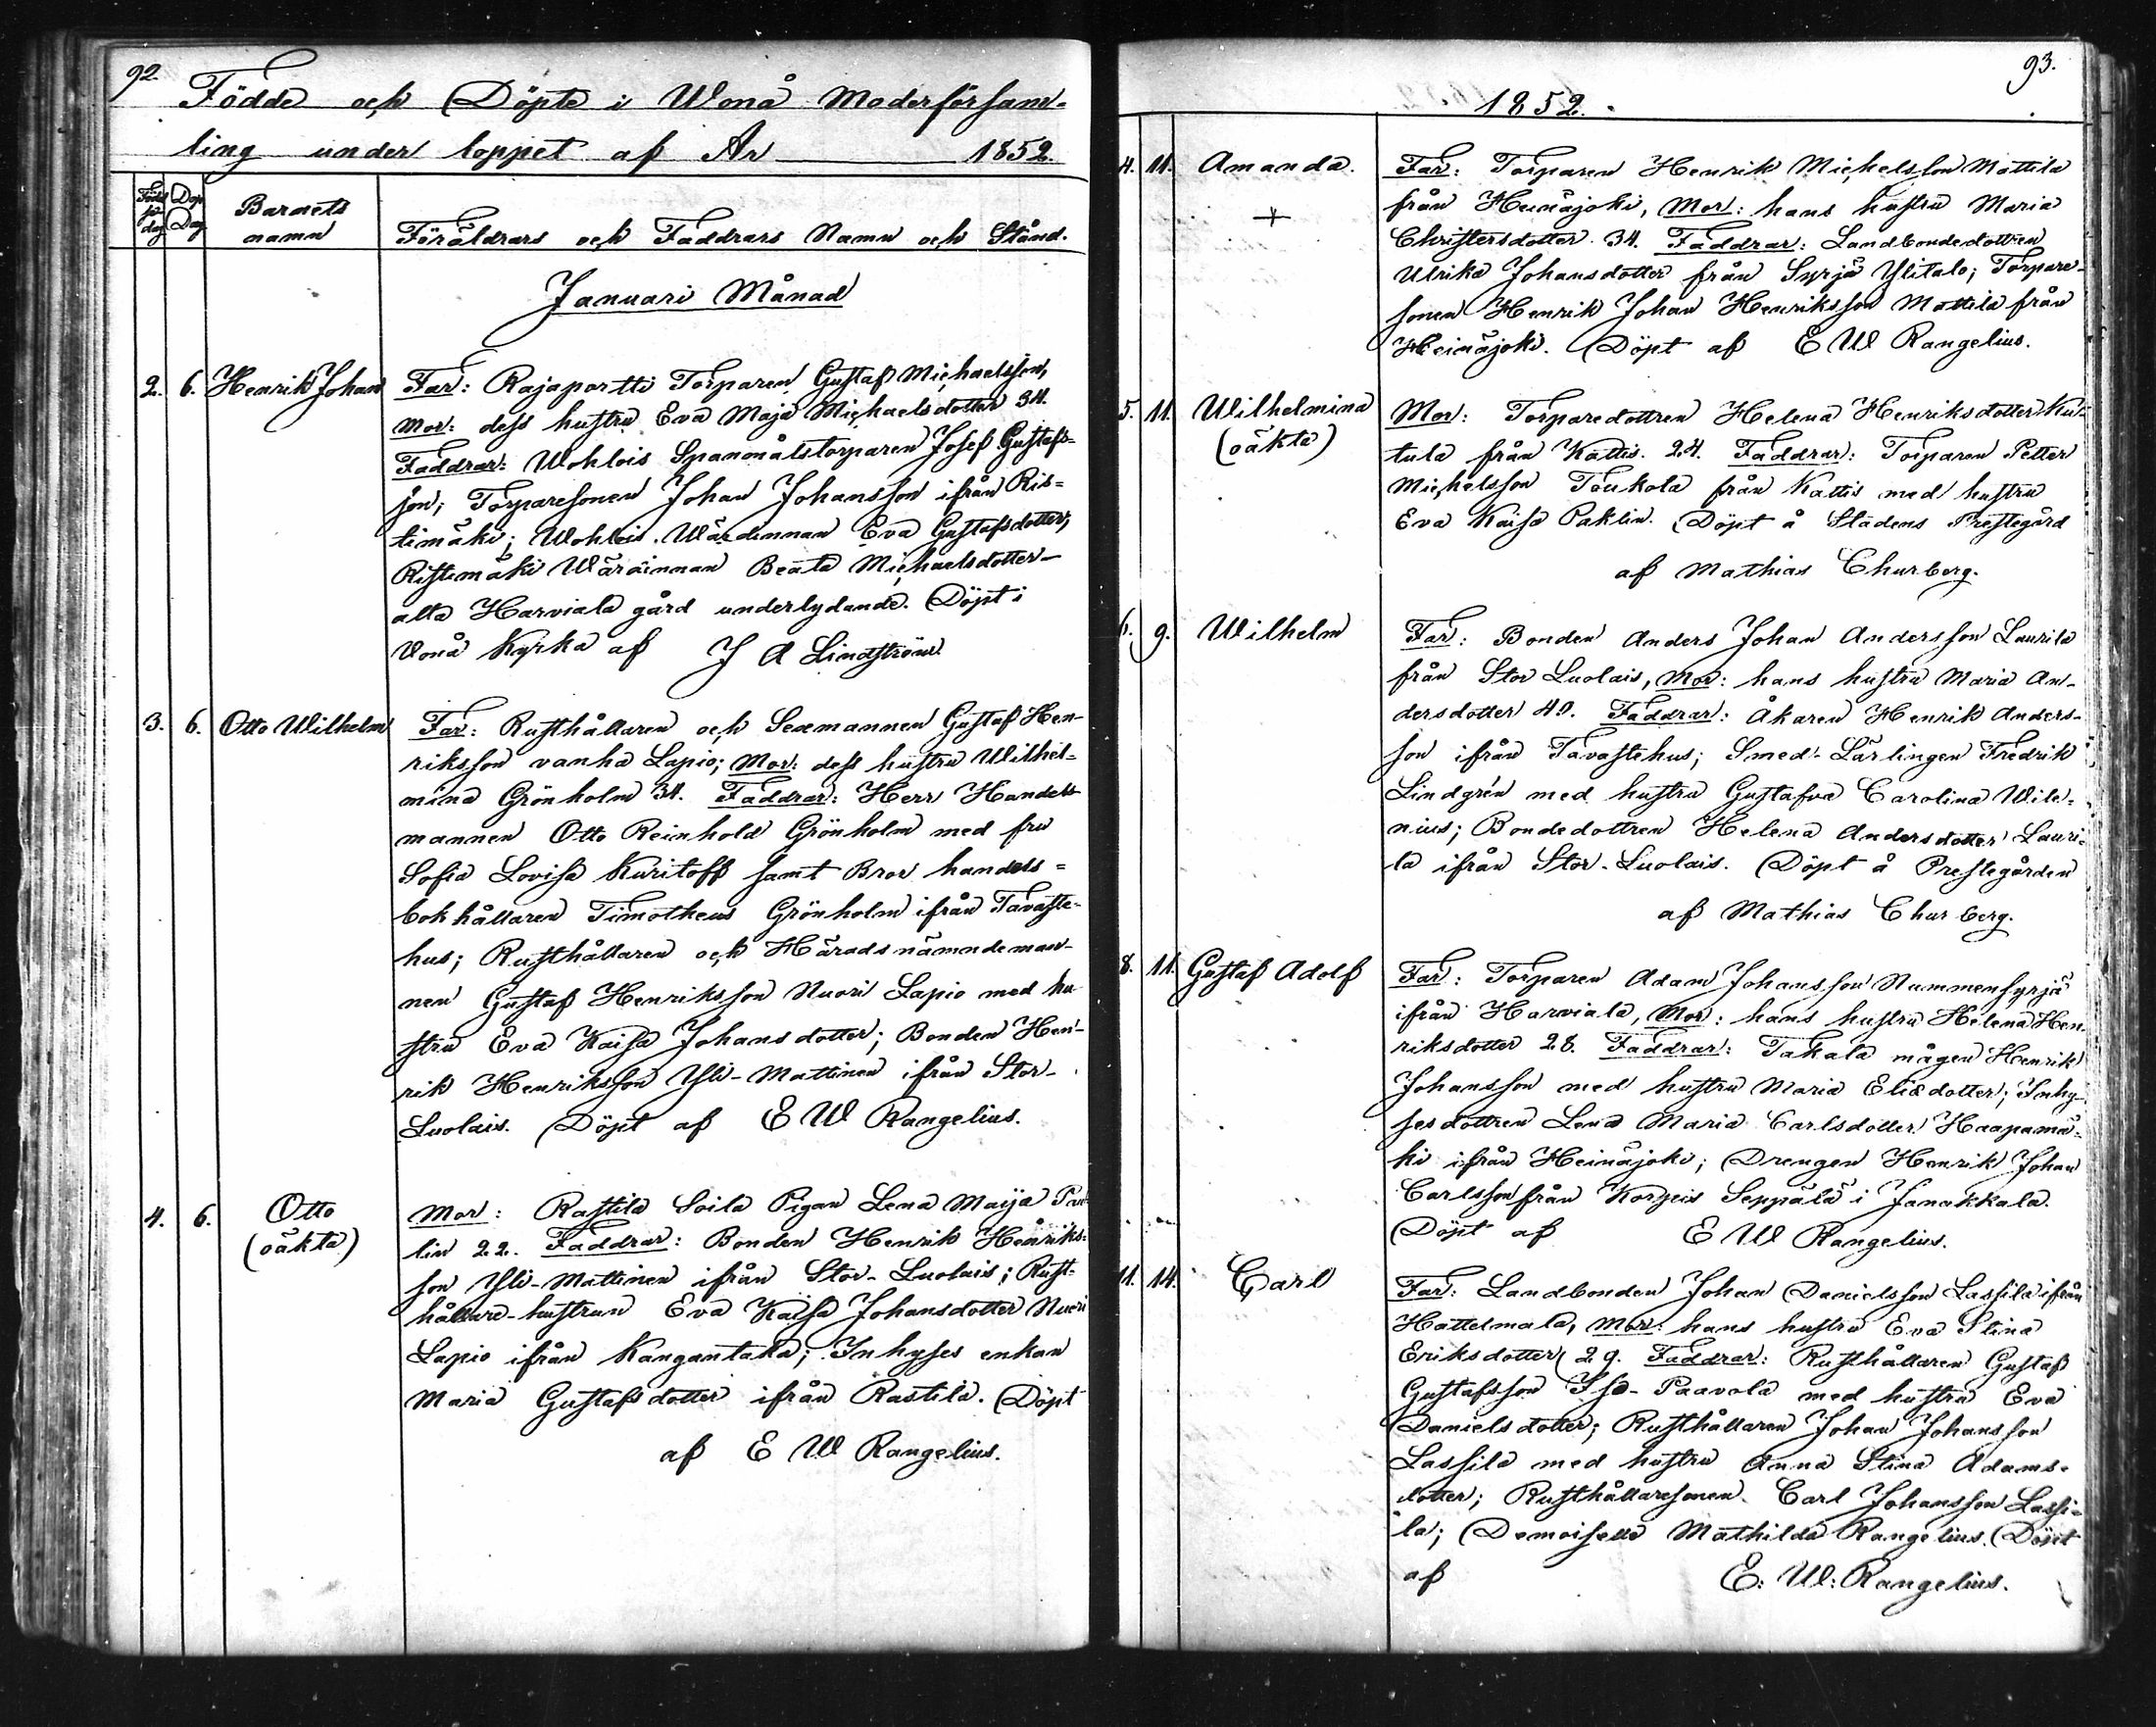 92.
Födde och Döpte i Wonå Moderförsam-
ling under loppet af År 1852.
Född
på
dag
Döp
Dag
Barnets
namn
Föräldrars och Faddrars Namn och Stånd.
Januari Månad
2. 6. Henrik Johan Far: Rajaportti Torparen Gustaf Michaelsson,
Mor: dess hustru Eva Maja Michaelsdotter 34.
Faddrar: Wohlois Spanmålstorparen Josef Gustafs-
son; Torparesonen Johan Johansson ifrån Ris-
timäki; Wohlois Wärdinnan Eva Gustafsdotter;
Ristimäki Wärdinnan Beata Michaelsdotter -
alla Harviala gård underlydande. Döpt i
Vonå Kyrka af J A Lindström.
3. 6. Otto Wilhelm Far: Rusthållaren och Sexmannen Gustaf Hen-
riksson vanha Lapio; Mor: dess hustru Wilhel-
mina Grönholm 34. Faddrar: Herr Handels-
mannen Otto Reinhold Grönholm med fru
Sofia Lovisa Kuritoff samt Bror handels-
bokhållaren Timotheus Grönholm ifrån Tavaste-
hus; Rusthållaren och Häradsnämndeman-
nen Gustaf Henriksson Nuori Lapio med hu-
stru Eva Kaisa Johansdotter; Bonden Hen-
rik Henriksson Yli-Mattinen ifrån Stor-
Luolais. Döpt af E W Rangelius.
4. 6. Otto
(oäkta)
Mor: Rastila Soila Pigan Lena Maija
lin 22. Faddrar: Bonden Henrik Henriks-
son Yli-Mattinen ifrån Stor-Luolais; Rust-
hållare-hustrun Eva Kaisa Johansdotter Nuori
Lapio ifrån Kangantaka; Inhyses enkan
Maria Gustafsdotter ifrån Rastila. Döpt
af E W Rangelius.
93.
1852.
4. 11. Amanda. Far: Torparen Henrik Michelsson Mattila
+
från Heinäjoki, Mor: hans hustru Maria
Christersdotter 34. Faddrar: Landbondedottren
Ulrika Johansdotter från Syrjä Ylitalo; Torpare-
sonen Henrik Johan Henriksson Mattila från
Heinäjoki. Döpt af E W Rangelius.
5. 11. Wilhelmina
(oäkta)
Mor: Torparedottren Helena Henriksdotter
tula från Kattis. 24. Faddrar: Torparen Petter
Michelsson Toukola från Kattis med hustru
Eva Kaisa Paklin. Döpt å Stadens Prestegård
af Mathias Churberg.
6. 9. Wilhelm Far: Bonden Anders Johan Andersson Laurila
från Stor Luolais, Mor: hans hustru Maria An-
dersdotter 40. Faddrar: Åkaren Henrik Anders-
son ifrån Tavastehus; Smed-Lärlingen Fredrik
Lindgrén med hustru Gustafva Carolina Wile-
nius; Bondedottren Helena Andersdotter Lauri-
la ifrån Stor-Luolais. Döpt å Prestegården
af Mathias Churberg.
8. 11. Gustaf Adolf Far: Torparen Adam Johansson Nummensyrjä
ifrån Harviala, Mor: hans hustru Helena Hen-
riksdotter 28. Faddrar: Takala mågen Henrik
Johansson med hustru Maria Eliedotter; Inhy-
sesdottren Lena Maria Carlsdotter Haapamä-
ki ifrån Heinäjoki; Drengen Henrik Johan
Carlsson från Korpis Seppälä i Janakkala.
Döpt af E W Rangelius.
11. 14. Carl Far: Landbonden Johan Danielsson Lassila ifrån
Hattelmala, Mor: hans hustru Eva Stina
Eriksdotter 29. Faddrar: Rusthållaren Gustaf
Gustafsson Iso-Paavola med hustru Eva
Danielsdotter; Rusthållaren Johan Johansson
Lassila med hustru Anna Stina Adams-
dotter; Rusthållaresonen Carl Johansson Lassi-
la; Demoiselle Mathilda Rangelius. Döpt
af E: W: Rangelius.